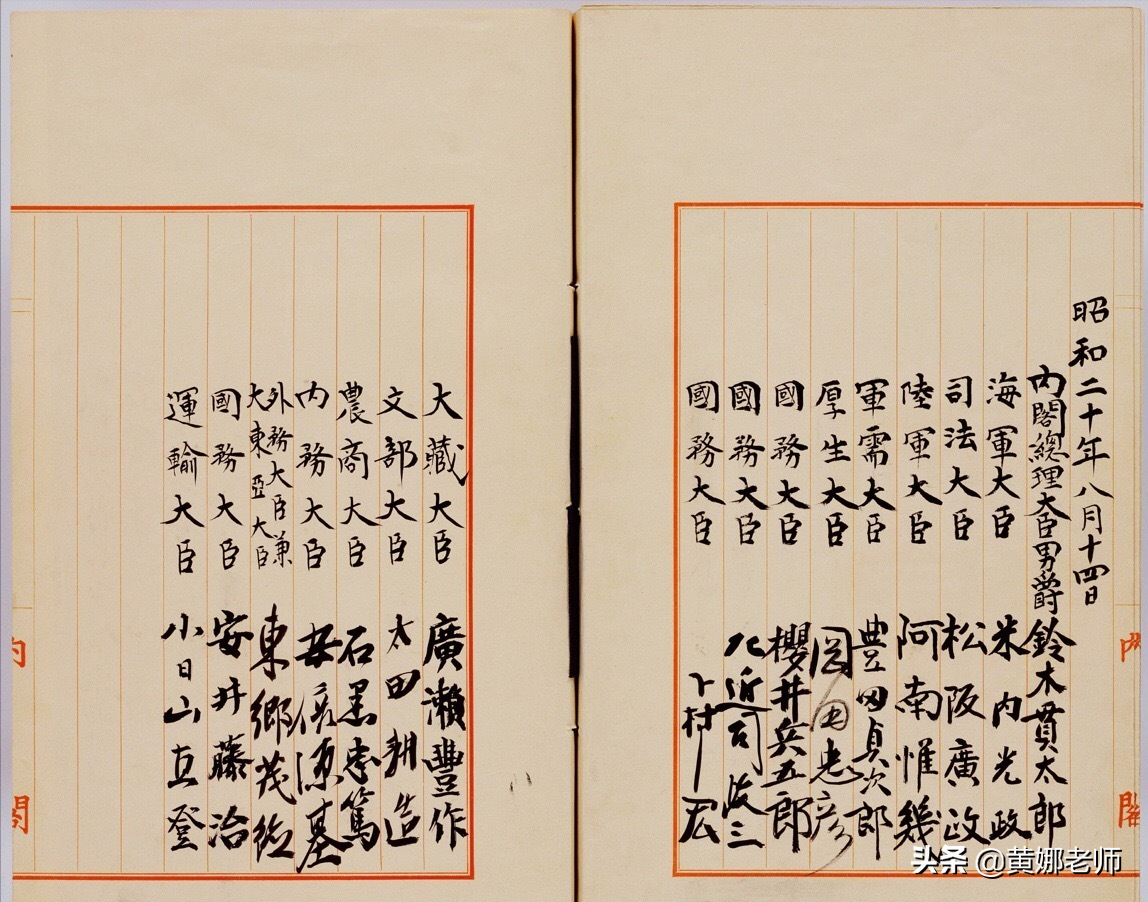 昭和二十年八月十四日
内閣總理大臣男爵 鈴木貫太郎
海軍大臣 米内光政
司法大臣 松阪廣政
陸軍大臣 阿南惟幾
軍需大臣 豊田貞次郎
厚生大臣 岡田忠彦
國務大臣 櫻井兵五郎
國務大臣 左近司政三
國務大臣 下村宏
大藏大臣 廣瀬豐作
文部大臣 太田耕造
農商大臣 石黒忠篤
内務大臣 安倍源基
外務大臣兼
大東亞大臣 東郷茂德
國務大臣 安井藤治
運輸大臣 小日山直登
内閣
内閣
头条 @黄娜老师